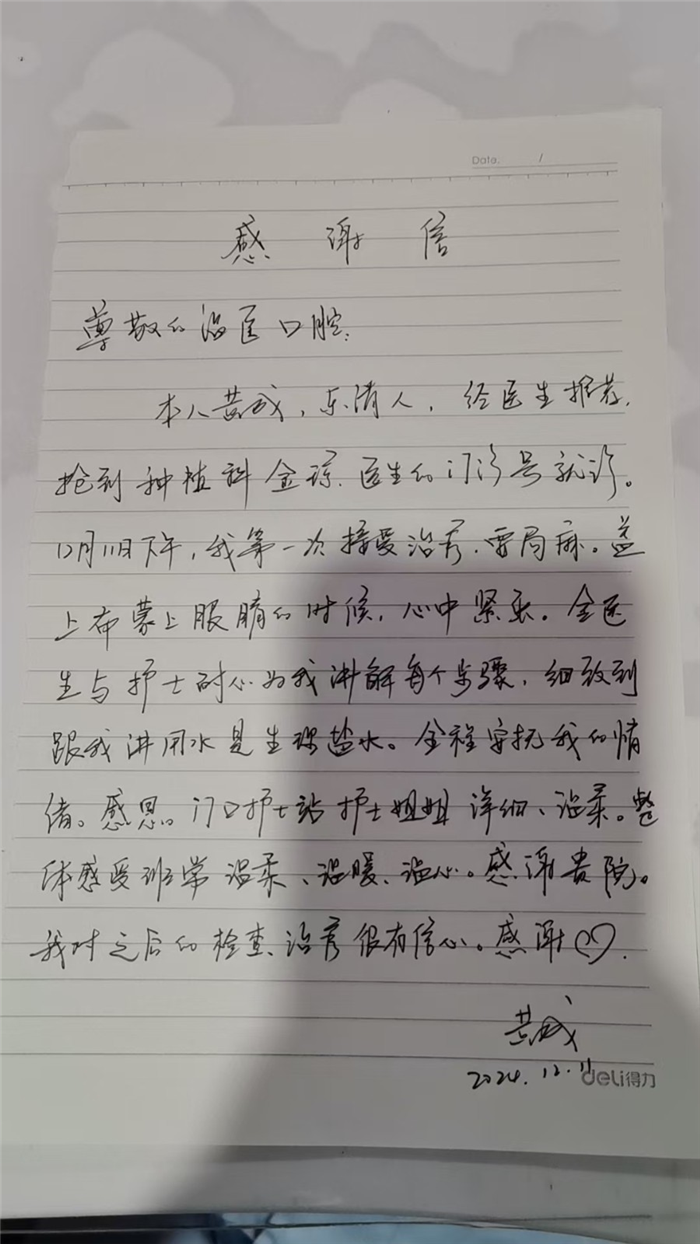 Date. /
感谢信
尊敬的温医口腔:
本人黄成,乐清人,经医生推荐,
抢到种植科金琼医生的门诊号就诊。
12月11日下午,我第一次接受治疗,要局麻。盖
上布蒙上眼睛的时候,心中紧张。金医
生与护士耐心为我讲解每个步骤,细致到
跟我讲用水是生理盐水。全程安抚我的情
绪。感恩。门口护士站护士姐姐详细、温柔。整
体感受非常温柔、温暖、温心。感谢贵院。
我对之后的检查、治疗很有信心。感谢♡.
黄成
2024.12.11
deli得力